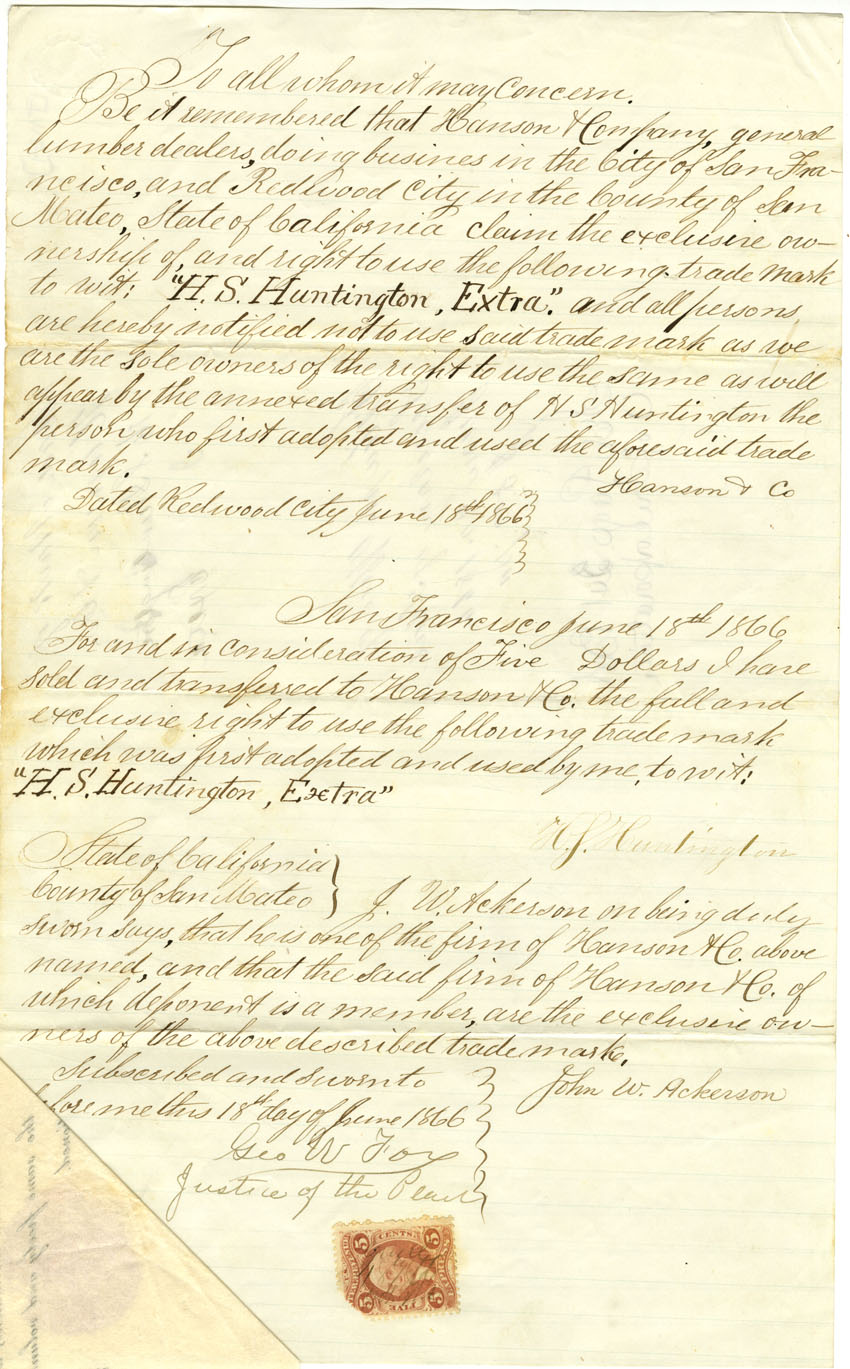 To all whom it may Concern.
Be it remembered that Hanson & Company, general
lumber dealers, doing busines in the City of San Fra-
ncisco, and Redwood City in the County of San
Mateo, State of California claim the exclusive ow-
nership of, and right to use the following trade mark
to wit: "H. S. Huntington, Extra". and all persons
are hereby notified not to use said trade mark as we
are the sole owners of the right to use the same as will
appear by the annexed transfer of H S Huntington the
person who first adopted and used the aforesaid trade
mark.
Hanson & Co
Dated Redwood City June 18th 1866
San Francisco June 18th 1866
For and in consideration of Five Dollars I have
sold and transferred to Hanson & Co. the full and
exclusive right to use the following trade mark
which was first adopted and used by me, to wit:
"H. S. Huntington, Extra"
H. S. Huntington
State of California
County of San Mateo } J. W. Ackerson on being duly
sworn says, that he is one of the firm of Hanson & Co. above
named, and that the said firm of Hanson & Co. of
which deponent is a member, are the exclusive ow-
ners of the above described trade mark.
Subscribed and sworn to
before me this 18th day of June 1866
John W. Ackerson
Geo W Fox
Justice of the Peace
5 CENTS 5
5 FIVE 5